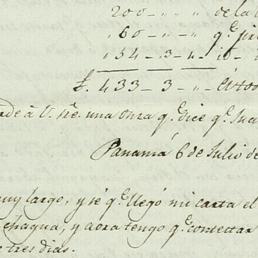 200 - " - " de la
" 60 - " - " q.e
" 154 - 3 - 4 -
$. 433 - 3 - "
de à V. s.re una onza q.e dice q.e Jua
Panamá 6 de Julio de
muy largo, y sé q.e llegó mi carta el
chagua, y aora tengo q.e contextar
e tres dias.